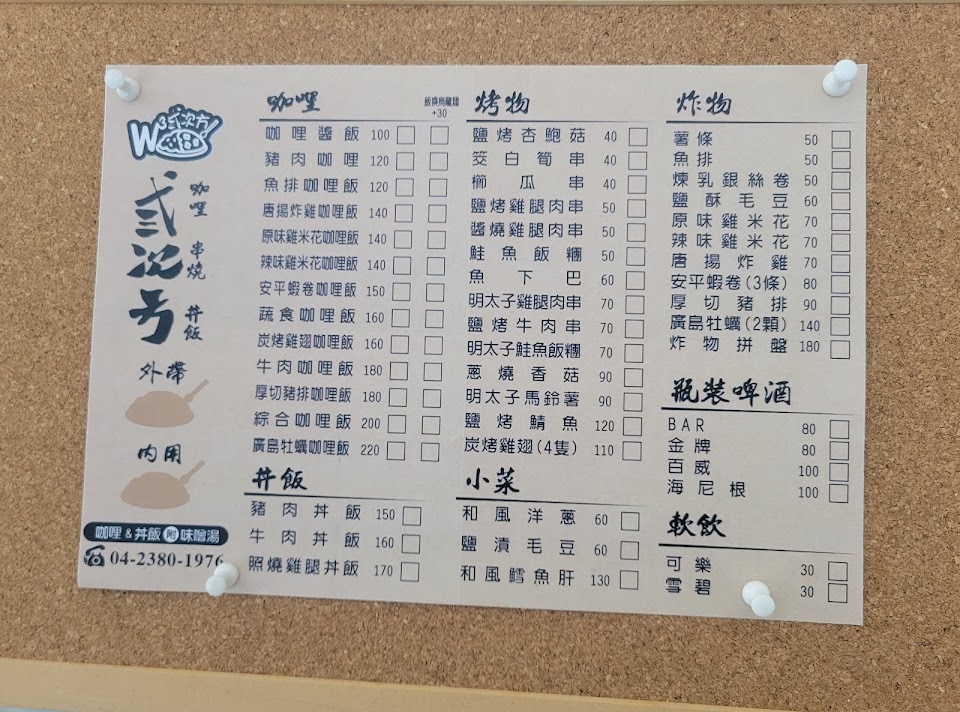 W3弍次方
弍次号
咖哩 串燒 丼飯
外帶
內用
咖哩&丼飯附味噌湯
☎04-2380-1976
咖哩
飯換烏龍麵
+30
咖哩醬飯 100
豬肉咖哩 120
魚排咖哩飯 120
唐揚炸雞咖哩飯 140
原味雞米花咖哩飯 140
辣味雞米花咖哩飯 140
安平蝦卷咖哩飯 150
蔬食咖哩飯 160
炭烤雞翅咖哩飯 160
牛肉咖哩飯 180
厚切豬排咖哩飯 180
綜合咖哩飯 200
廣島牡蠣咖哩飯 220
丼飯
豬肉丼飯 150
牛肉丼飯 160
照燒雞腿丼飯 170
烤物
鹽烤杏鮑菇 40
筊白筍串 40
櫛瓜串 40
鹽烤雞腿肉串 50
醬燒雞腿肉串 50
鮭魚飯糰 50
魚下巴 60
明太子雞腿肉串 70
鹽烤牛肉串 70
明太子鮭魚飯糰 70
蔥燒香菇 90
明太子馬鈴薯 90
鹽烤鯖魚 120
炭烤雞翅(4隻) 110
小菜
和風洋蔥 60
鹽漬毛豆 60
和風鱈魚肝 130
炸物
薯條 50
魚排 50
煉乳銀絲卷 50
鹽酥毛豆 60
原味雞米花 70
辣味雞米花 70
唐揚炸雞 70
安平蝦卷(3條) 80
厚切豬排 90
廣島牡蠣(2顆) 140
炸物拼盤 180
瓶裝啤酒
BAR 80
金牌 80
百威 100
海尼根 100
軟飲
可樂 30
雪碧 30